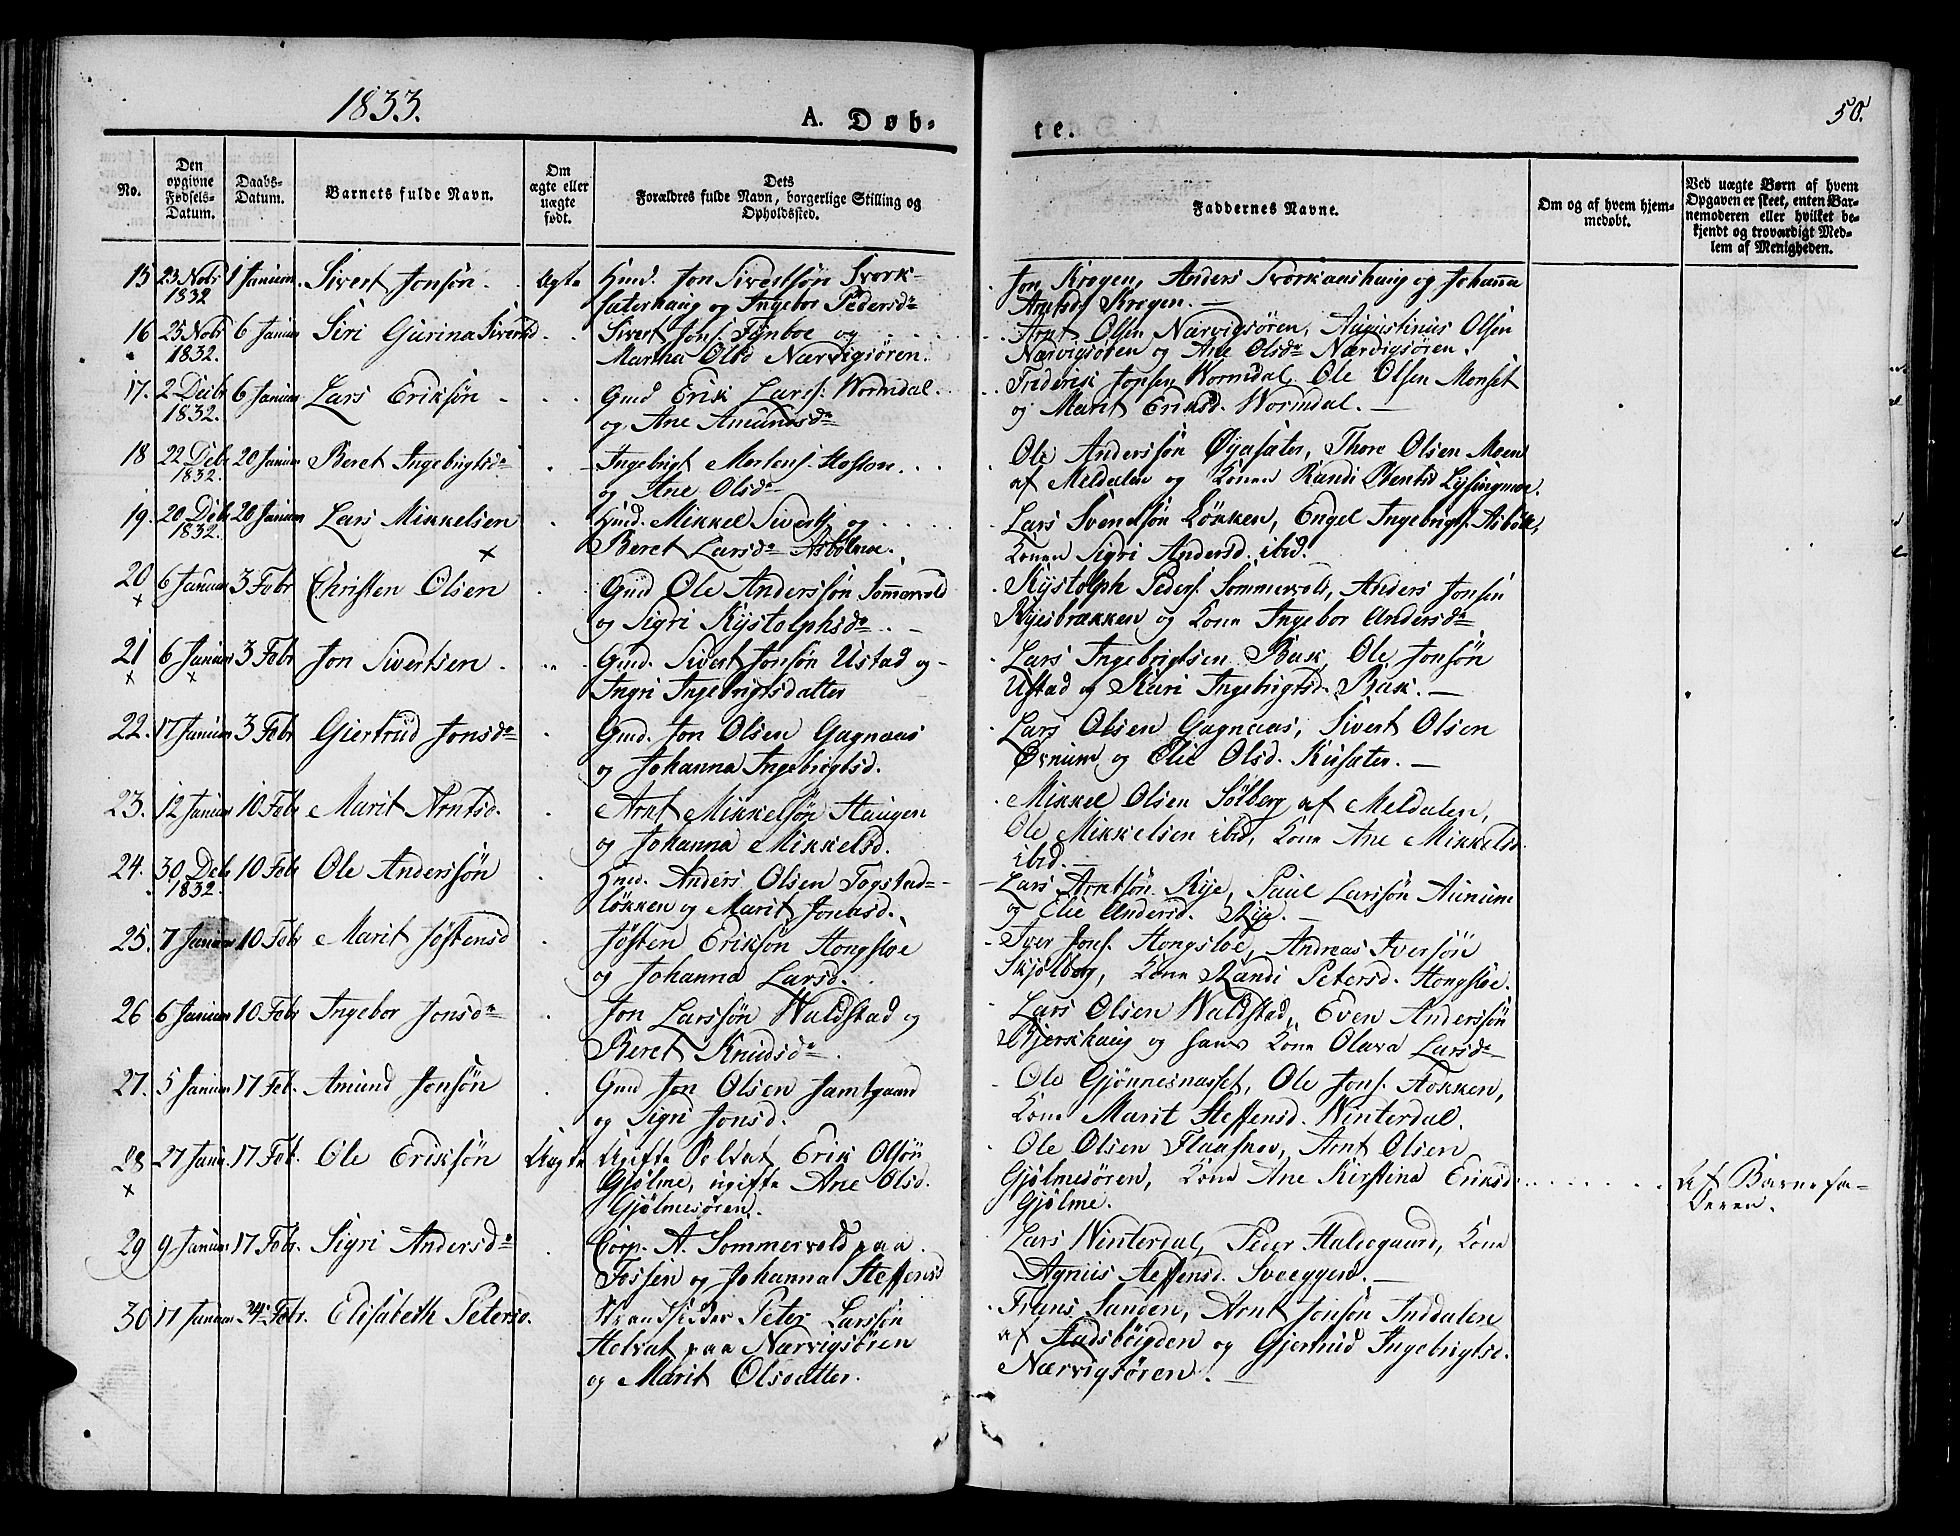 1833.
A. Døb-
te.
50.
No.
Den opgivne Fødsels-Datum.
Daabs-Datum.
Barnets fulde Navn.
Om ægte eller uægte født.
Dets Forældres fulde Navn, borgerlige Stilling og Opholdssted.
Faddernes Navne.
Om og af hvem hjem-medøbt.
Ved uægte Børn af hvem Opgaven er skeet, enten Bar-nemoderen eller hvilket be-kjendt og troværdigt Med-lem af Menigheden.
15 23 Nobr 1832 1 Januar Sivert Jonsön. Ægte Huusmd. Jon Sivertsön Svork-
sæterhaug og Ingebor Pedersdr
Jon Krogen, Anders Svorkaashaug og Johanna
Arntsdr Krogen.
16 25 Nobr 1832. 6 Januar Siri Gurina Sivertsd
Sivert Jons. Tynboe og
Martha Olsd Nærvigsören.
Arnt Olsen Nærvigsören, Augustinus Olsen
Nærvigsören og Ane Olsdr Nærvigsören.
17. 2 Decbr 1832. 6 Januar Lars Eriksön
Gmd Erik Larss. Wormdal.
og Ane Amundsdr
Frederik Jonsen Wormdal. Ole Olsen Monset
og Marit Eriksd. Wormdal.
18 22 Debr 1832. 20 Januar Beret Ingebrigtsdr
Ingebrigt Mortens. Hoston.
og Ane Olsdr
Ole Anderssön Öyasæter, Thore Olsen Moen
af Meldalen og Kone Randi Bentsd Lysingmoe.
19. 20 Debr 1832. 20 Januar Lars Mikkelsen
Hmd. Mikkel Siverts. og
Beret Larsdr Asbölmoe.
Lars Svendsön Lökken, Engel Ingebrigts. Asböll,
Konen Sigri Andersd. ibid.
20 6 Januar 3 Febr Christen Olsen
Gmd Ole Anderssön Sommervold
og Sigri Kystolphsdr
Kystolph Peders. Sommervold, Anders Jonsen
Ryesbrækken og Kone Ingebor Andersdr
21 6 Januar 3 Febr Jon Sivertsen
Gmd. Sivert Jonsön Ustad og
Ingri Ingebrigtsdatter
Lars Ingebrigtsen Bask, Ole Jonsön
Ustad og Kari Ingebrigtsdr Bask.
22. 17 Januar 3 Febr Giertrud Jonsdr
Gmd. Jon Olsen Gagnaas
og Johanna Ingebrigtsd.
Lars Olsen Gagnaas, Sivert Olsen
Ørnum og Elie Olsd. Kusæter.
23. 12 Januar 10 Febr Marit Arntsd.
Arnt Mikkelsön Haugen
og Johanna Mikkelsd.
Mikkel Olsen Sölberg af Meldalen,
Ole Mikkelsen ibid, Kone Ane Mikkelsd
ibid.
24. 30 Debr 1832. 10 Febr Ole Anderssön
Hmd. Anders Olsen Togstad-
lökken og Marit Jonasd.
Lars Arntsön Rye, Paul Larssön Aunum
og Elie Andersd. Rye.
25. 7 Januar 10 Febr Marit Jöstensd
Jösten Eriksön Hongsloe
og Johanna Larsd.
Iver Jons. Hongsloe, Andreas Iversön
Skjölberg, Kone Randi Petersd. Hongsloe.
26 6 Januar 10 Febr Ingebor Jonsdr
Jon Larssön Waldstad og
Beret Knudsdr
Lars Olsen Waldstad, Even Anderssön
Bjerkhaug og hans Kone Olava Larsdr
27. 5 Januar 17 Feb. Amund Jonsön
Gmd Jon Olsen Jamtgaard
og Sigri Jonsd.
Ole Gjönnesnasset, Ole Jons. Stokken,
Kone Marit Steffensd. Winterdal.
28 27 Janu. 17 Feb. Ole Eriksön Uægte Ugifte Soldat Erik Olsön
Gjölme, ugifte Ane Olsd.
Gjölmesören.
Ole Olsen Flaasnev, Arnt Olsen
Gjölmesören, Kone Ane Kirstina Eriksd
Gjölme.
Af Barnefa-
deren.
29 9 Januar 17 Febr. Sigri Andersdr
Corp. A. Sommervold paa
Fossen og Johanna Steffensd
Lars Winterdal, Peder Haldogaard, Kone
Agnis Steffensd. Sveeggen.
30 17 Januar 24 Febr. Elisabeth Petersd.
Strandsidder Peter Larssön
Holvat paa Nærvigsören
og Marit Olsdatter.
Frans Sanden, Arnt Jonsön Inddalen
af Stadsböigden og Gjertrud Ingebrigtsd.
Nærvigsören.